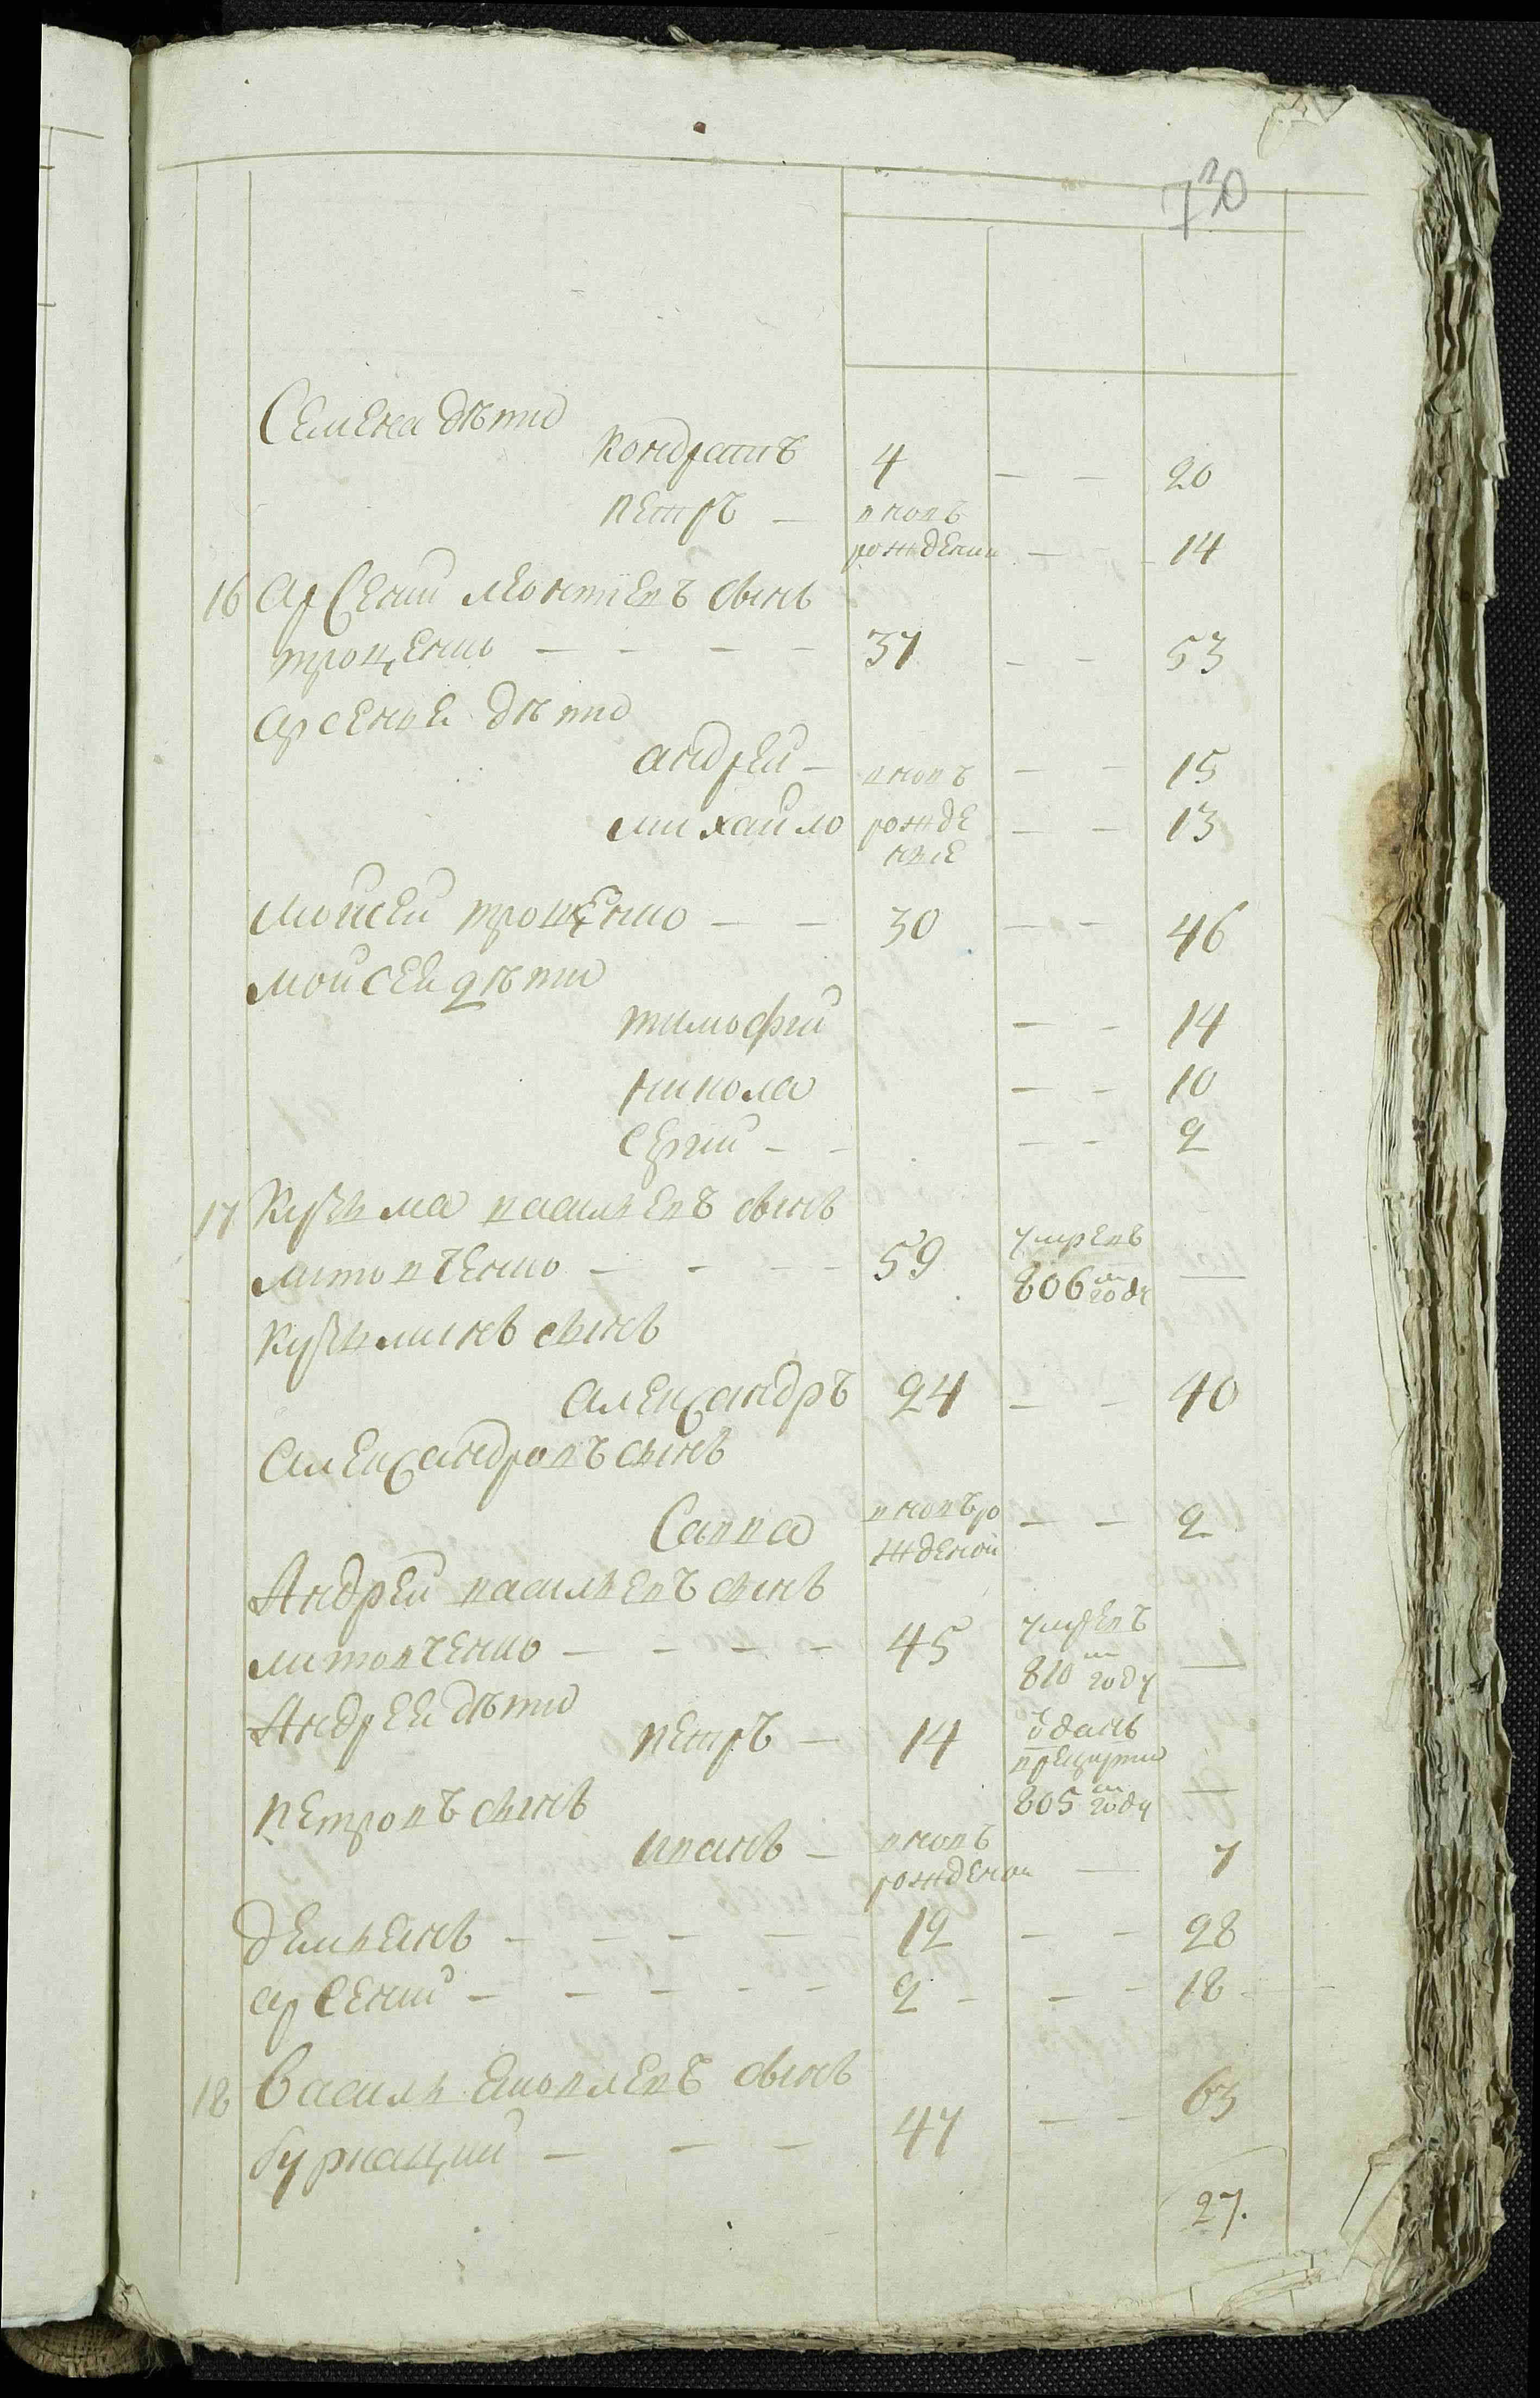 Семена дѣти
кондратъ 4 — — 20
петръ — вновь
рождении — — 14
16 Арсений леонтіевъ сынъ
троценко — — — — 37 — — 53
арсения дѣти
андрей — вновь — — 15
михайло рожде — — 13
ные
Мойсей троценко — — 30 — — 46
мойсея дѣти
тимофей — — 14
никола — — 10
сергий — — — — 2
17 Кузьма васильевъ сынъ
литовченко — — — — 59 умревъ
806м году —
кузьминъ сынъ
александръ 24 — — 40
александровъ сынъ
Савва вновь ро — — 2
жденой
Андрей васильевъ сынъ
литовченко — — — — 45 умревъ
810м году —
Андрея дѣти
петръ — 14 ѡданъ
805м году —
петровъ сынъ
иванъ — вновь
рожденой — 7
демьянъ — — — — — 12 — — 28
арсений — — — — — — 2 — — — 18
18 Василь яковлевъ сынъ
47 — — 63
27.